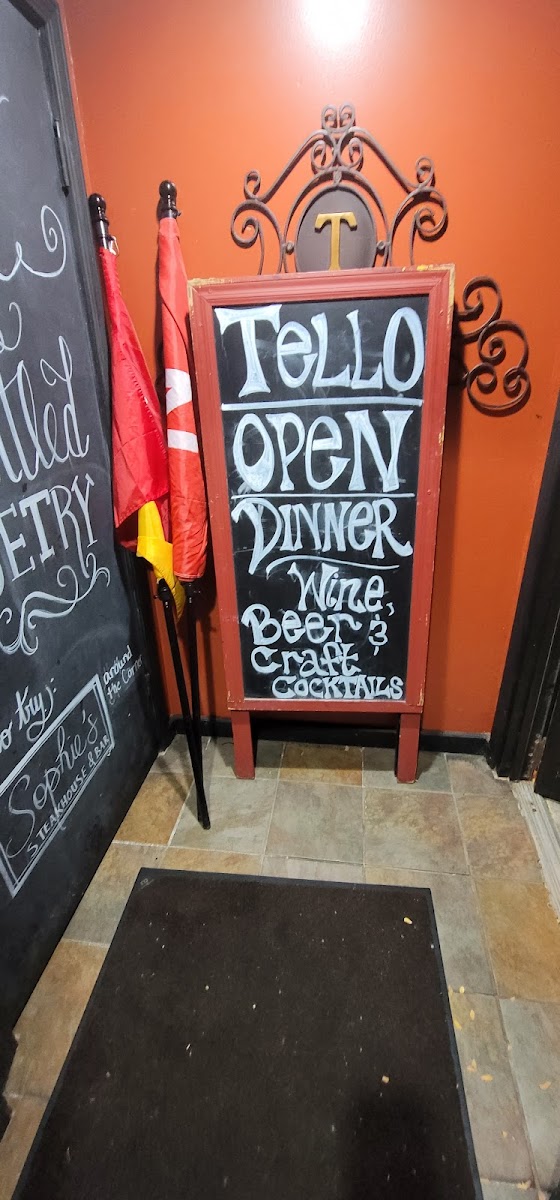 T
Tello
Open
Dinner
Wine,
Beer &
Craft
Cocktails
around
the Corner
try:
Sophie's
STEAKHOUSE & BAR